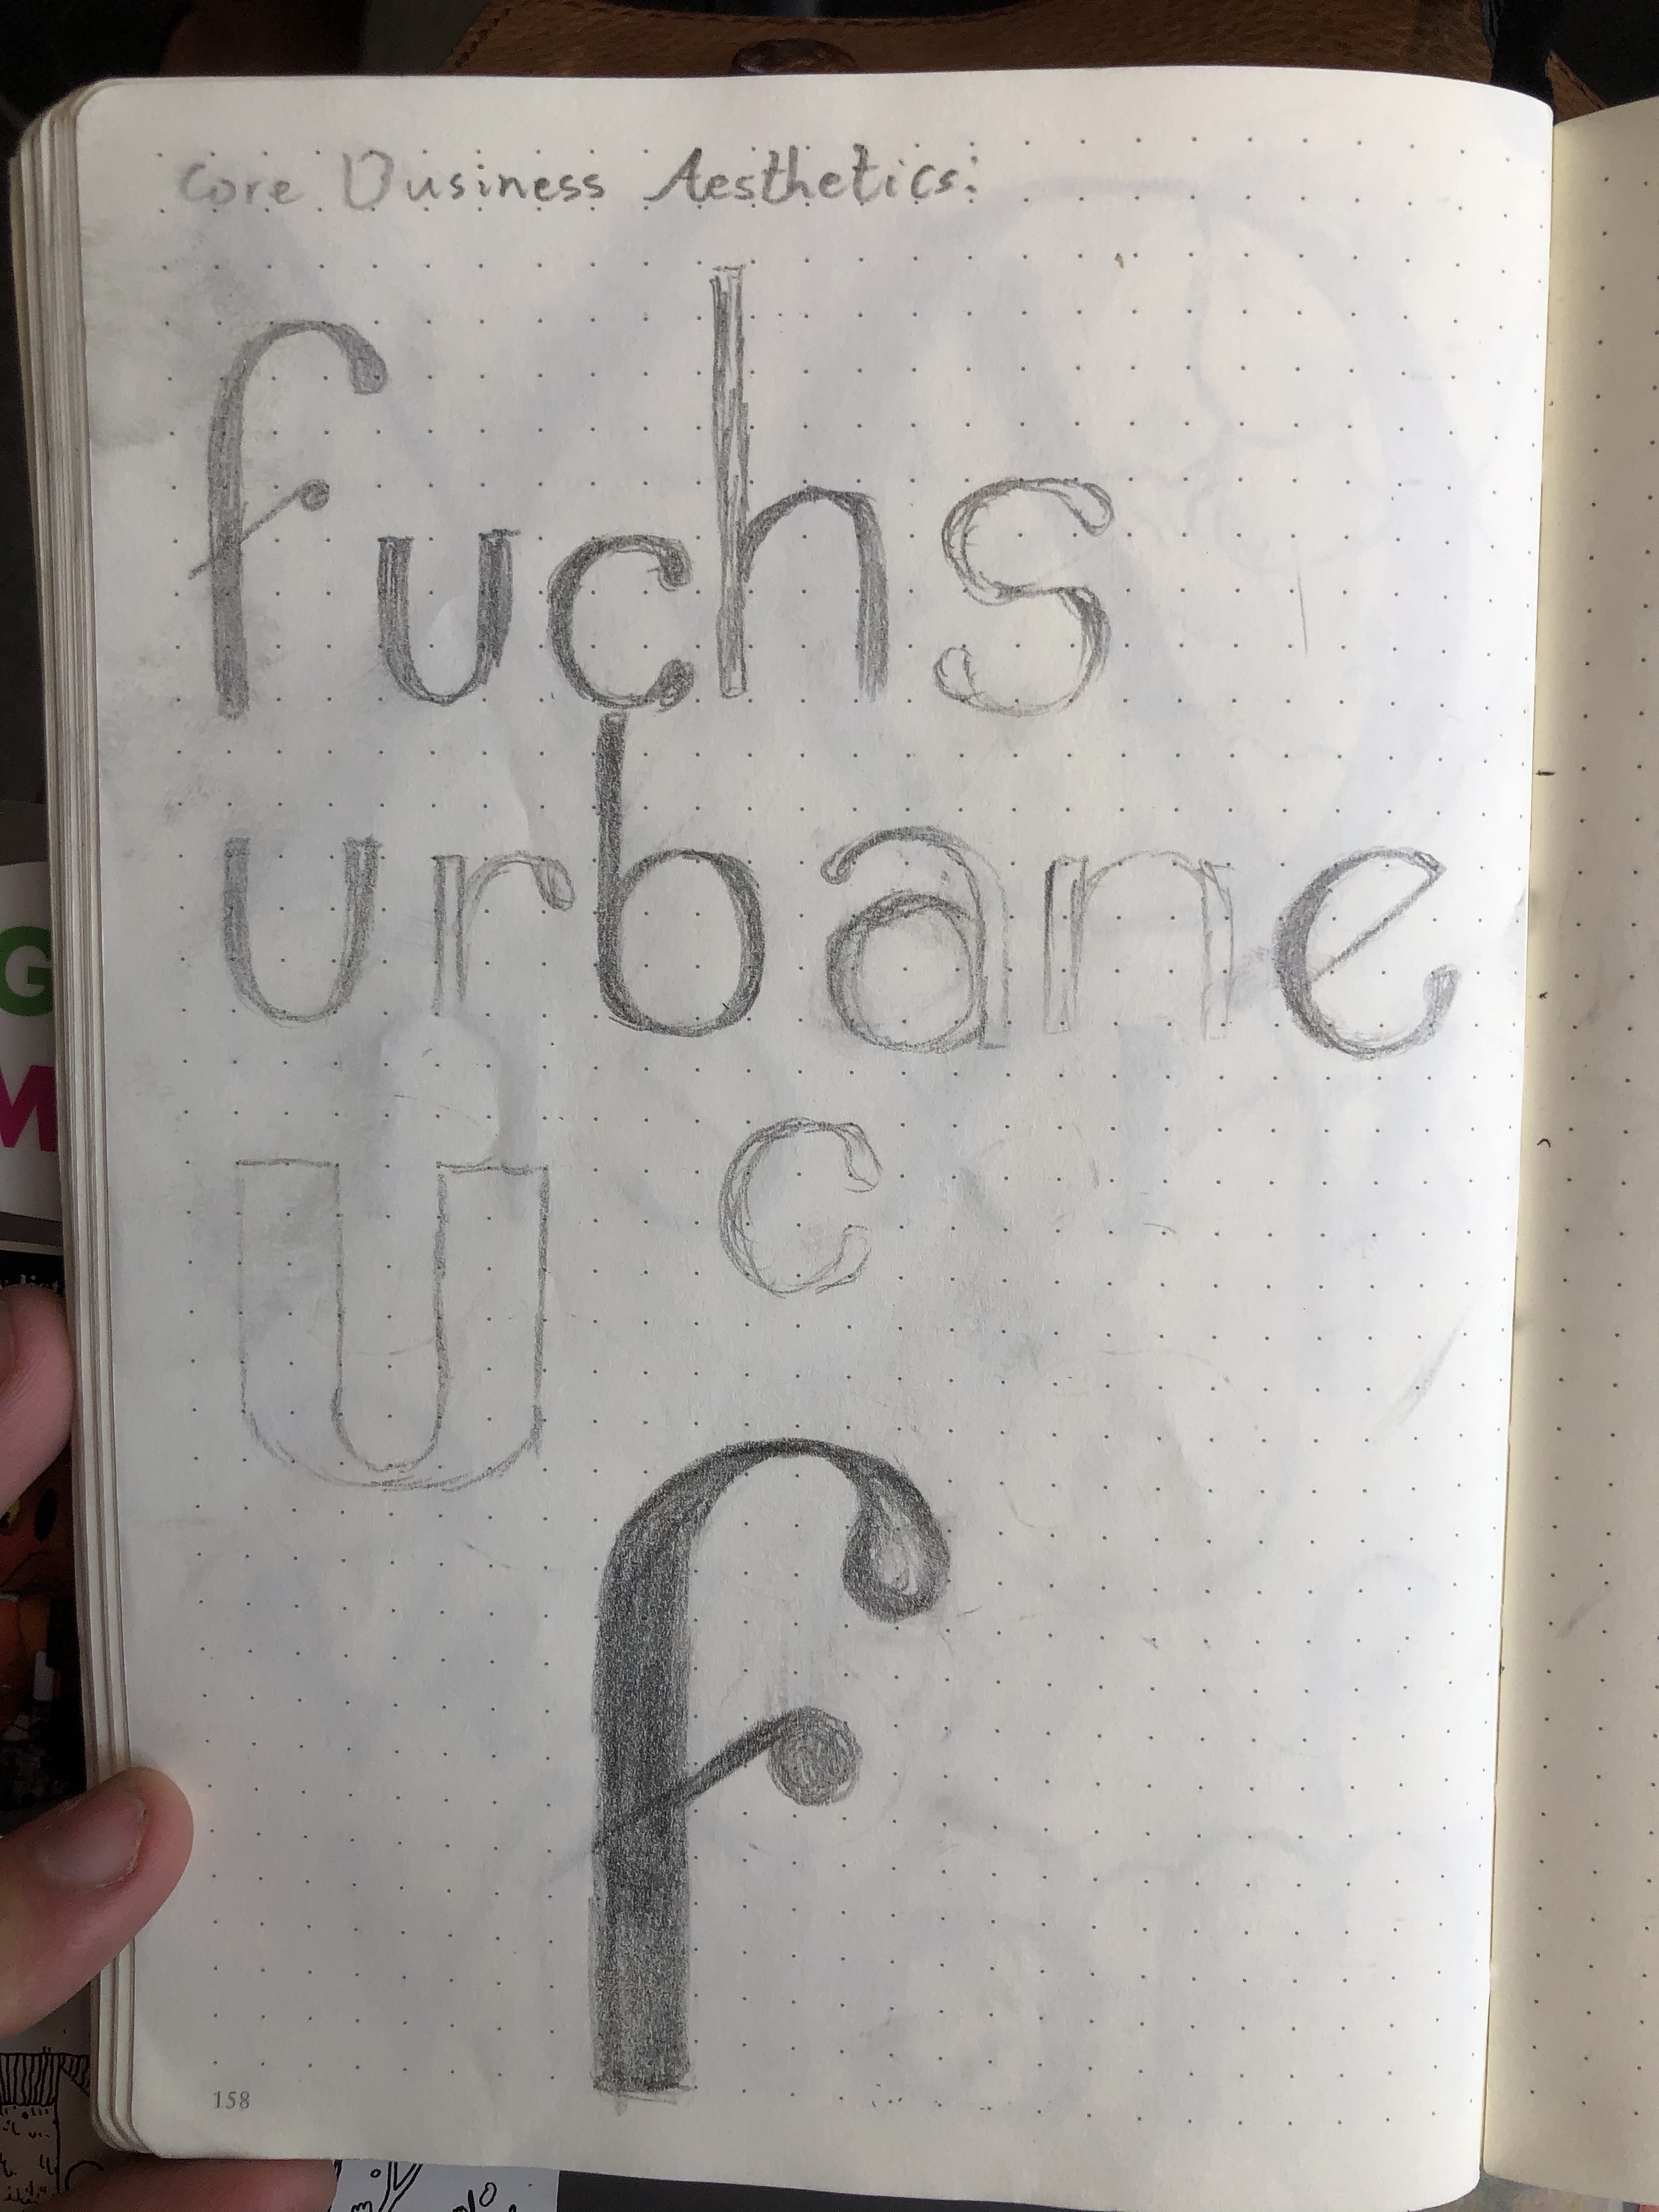 Core Business Aesthetics:
fuchs
urbane
U c
f
158
G
M